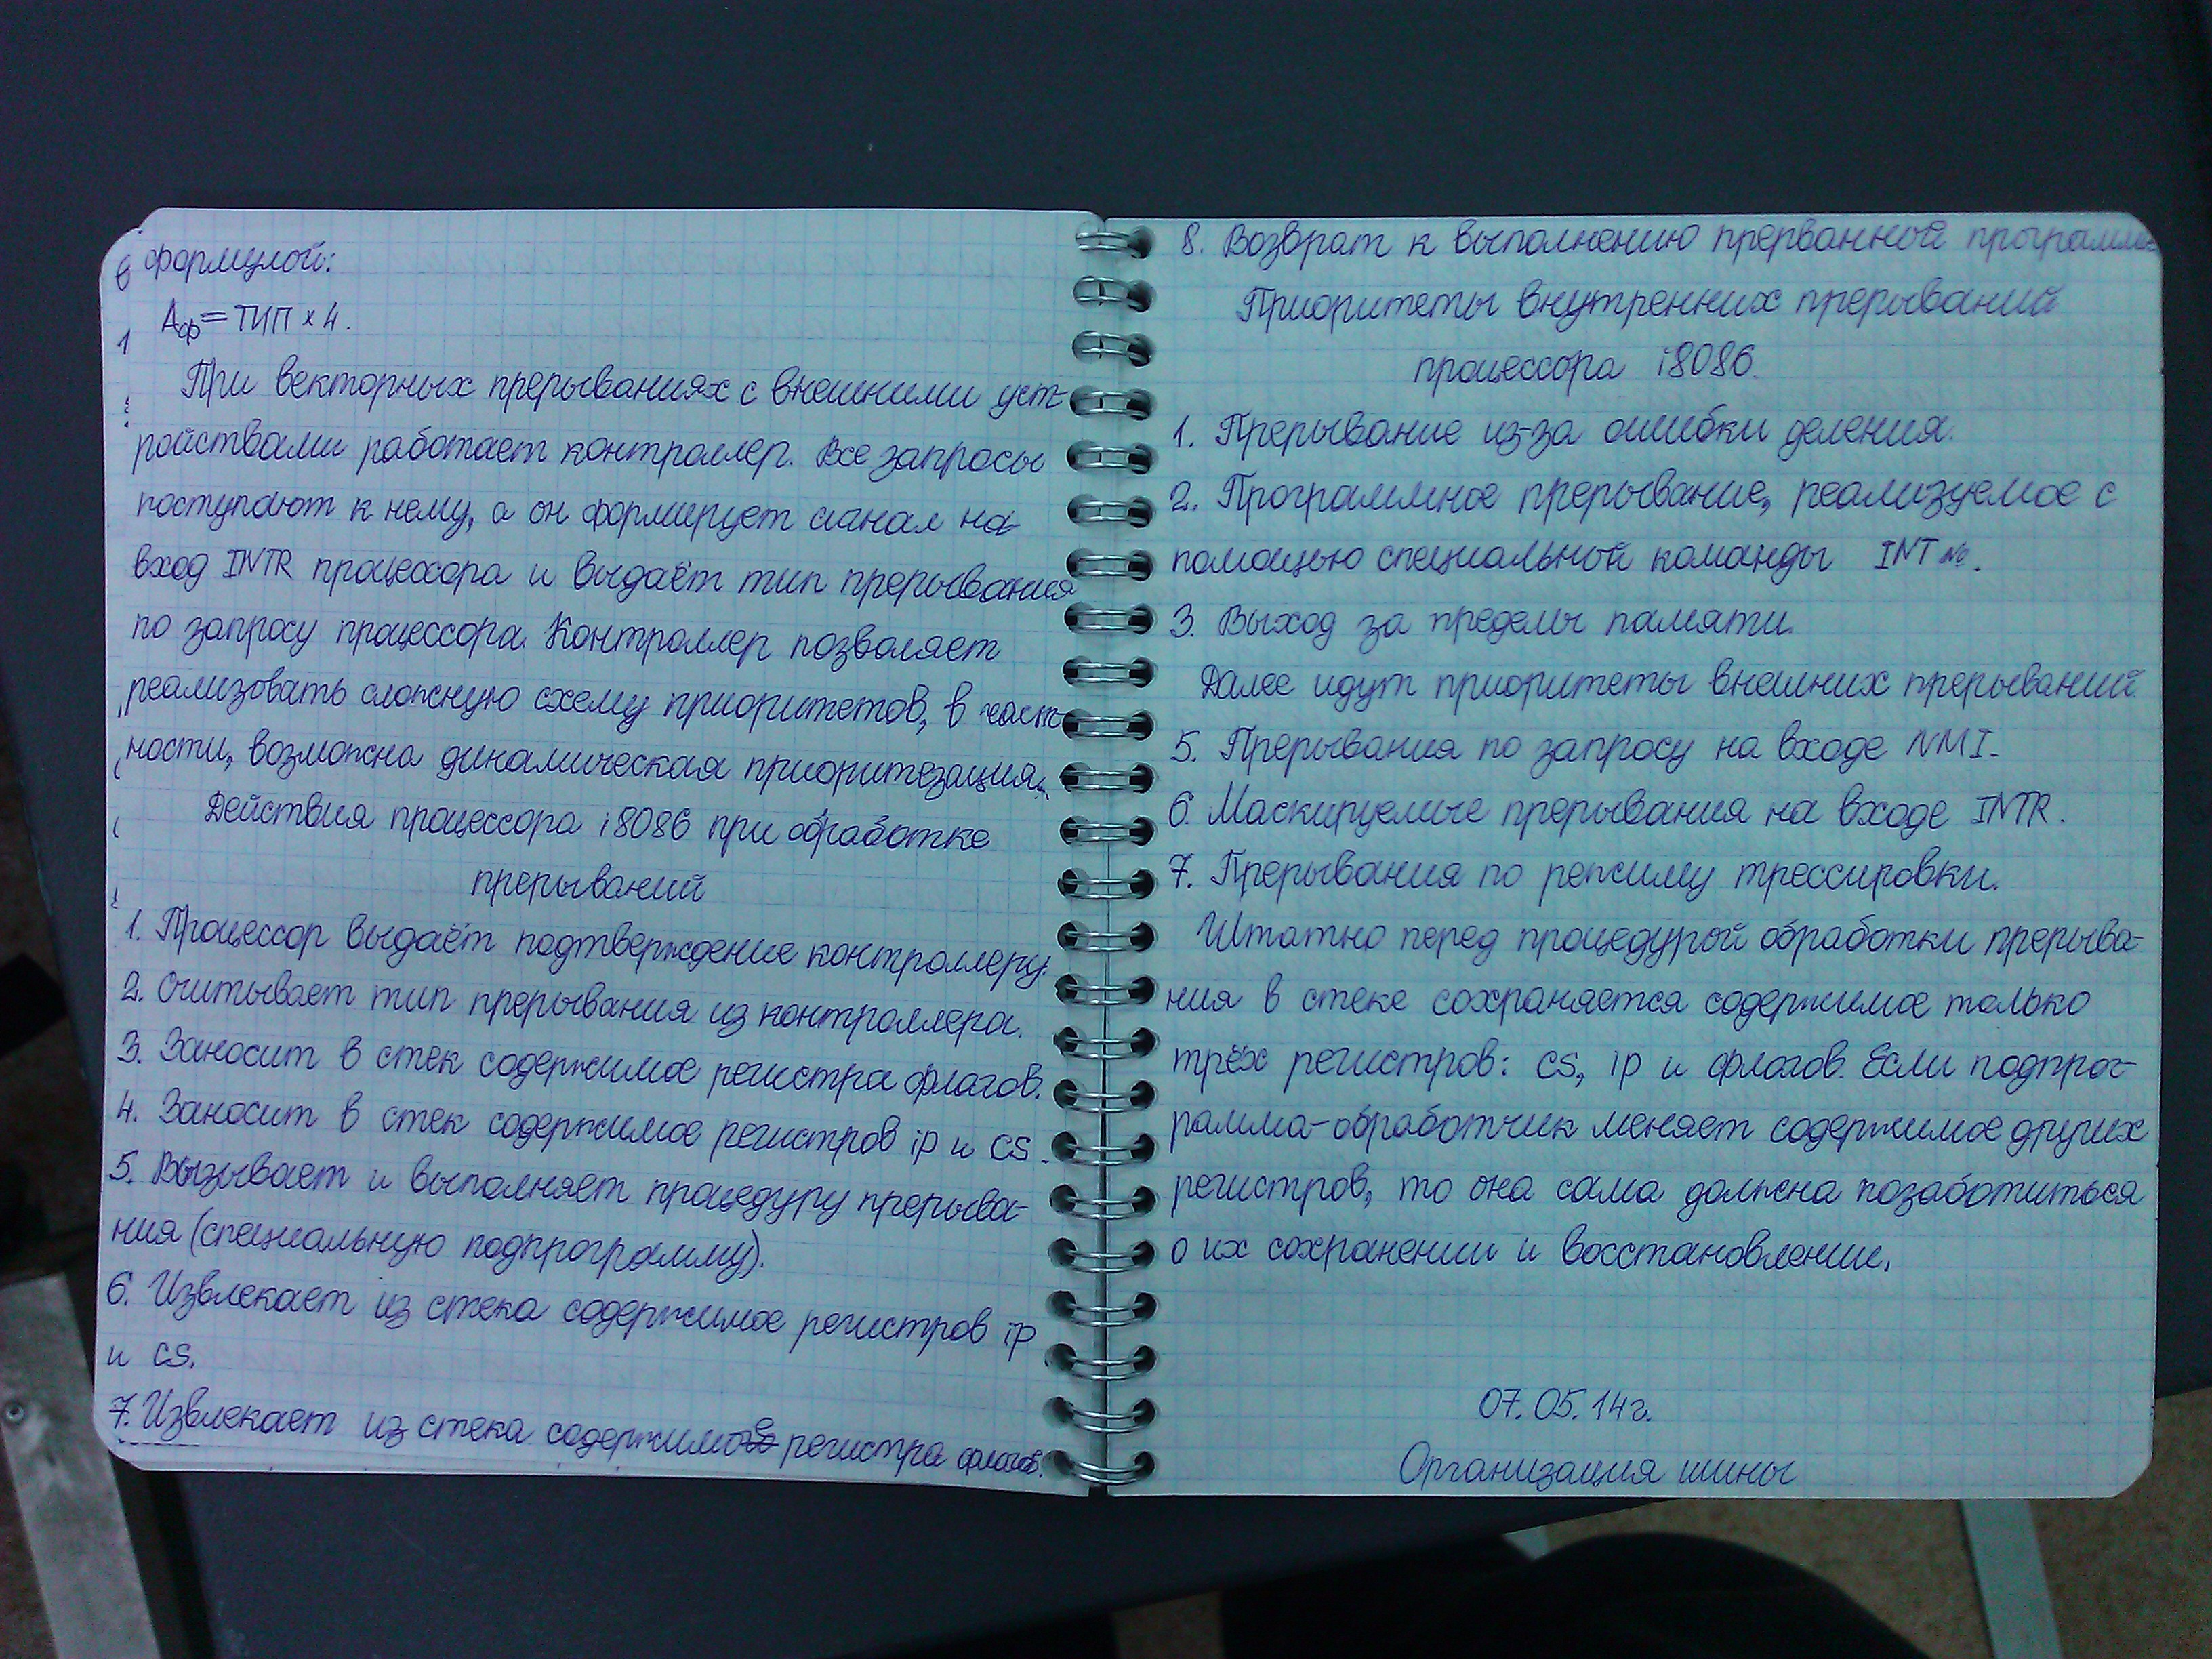 формулой:
Аэф = ТИП × 4.
При векторных прерываниях с внешними уст-
ройствами работает контроллер. Все запросы
поступают к нему, а он формирует сигнал на
вход INTR процессора и выдаёт тип прерывания
по запросу процессора. Контроллер позволяет
реализовать сложную схему приоритетов, в част-
ности, возможна динамическая приоритезация.
Действия процессора i8086 при обработке
прерываний
1. Процессор выдаёт подтверждение контроллеру.
2. Считывает тип прерывания из контроллера.
3. Заносит в стек содержимое регистра флагов.
4. Заносит в стек содержимое регистров ip и cs.
5. Вызывает и выполняет процедуру прерыва-
ния (специальную подпрограмму).
6. Извлекает из стека содержимое регистров ip
и cs.
7. Извлекает из стека содержимое регистра флагов.
8. Возврат к выполнению прерванной программы
Приоритеты внутренних прерываний
процессора i8086.
1. Прерывание из-за ошибки деления.
2. Программное прерывание, реализуемое с
помощью специальной команды INT №.
3. Выход за пределы памяти.
Далее идут приоритеты внешних прерываний.
5. Прерывания по запросу на входе NMI.
6. Маскируемые прерывания на входе INTR.
7. Прерывания по режиму трессировки.
Штатно перед процедурой обработки прерыва-
ния в стеке сохраняется содержимое только
трёх регистров: cs, ip и флагов. Если подпрог-
рамма-обработчик меняет содержимое других
регистров, то она сама должна позаботиться
о их сохранении и восстановлении.
07.05.14г.
Организация шины